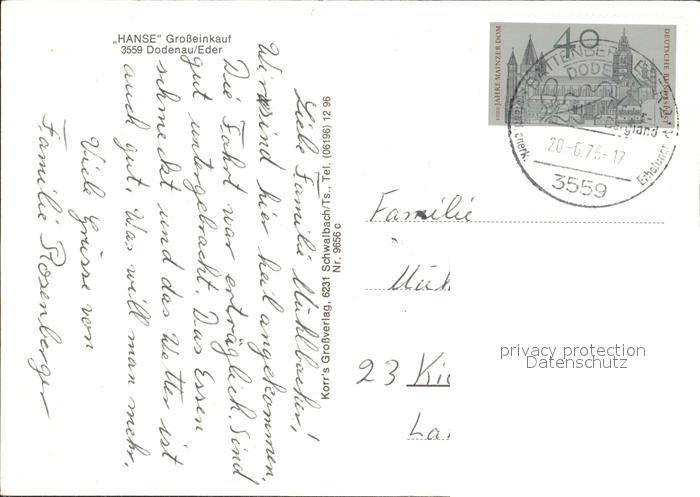 „HANSE" Großeinkauf
3559 Dodenau/Eder
Liebe Familie Mühlbacher!
Wir sind hier heil angekommen,
Die Fahrt war erträglich. Sind
gut untergebracht. Das Essen
schmeckt und das Wetter ist
auch gut. Was will man mehr.
Viele Grüsse von
Familie Rosenberger
Korr's Großverlag, 6231 Schwalbach/Ts., Tel. (06196) 12 96
Nr. 9656 c
40
1000 JAHRE MAINZER DOM
DEUTSCHE BUNDESPOST
BATTENBERG
DODE
bergland
20-6.75-17
3559
Familie
Müh
23 Kie
La
privacy protection
Datenschutz